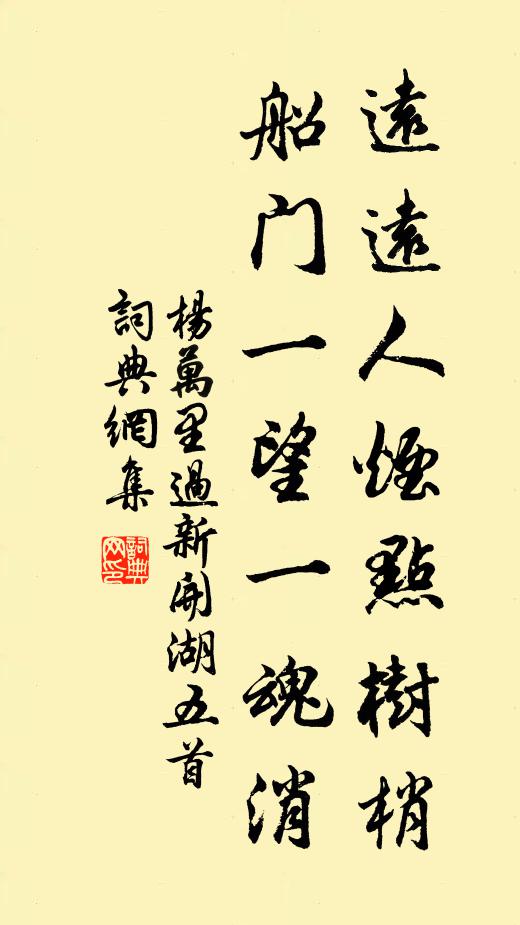 遠遠人煙點樹梢
船門一望一魂消
楊萬里過新開湖五首
詞典網集
詞典网印